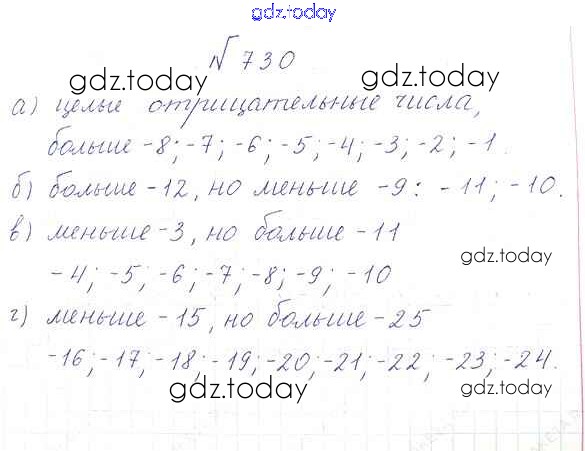 gdz.today
№ 730
gdz.today gdz.today
а) целые отрицательные числа,
больше -8; -7; -6; -5; -4; -3; -2; -1.
б) больше -12, но меньше -9: -11; -10.
в) меньше -3, но больше -11
gdz.today
-4; -5; -6; -7; -8; -9; -10
г) меньше -15, но больше -25
-16; -17; -18; -19; -20; -21; -22; -23; -24.
gdz.today gdz.today